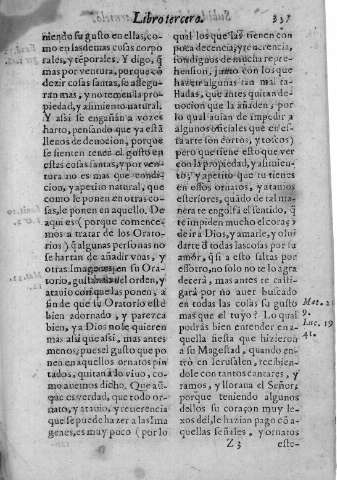 Libro tercero.
337
niendo su gusto en ellas, co-
mo en las demas cosas corpo
rales, y tẽporales. Y digo, q̃
mas por ventura, porque cõ
dezir cosas santas, se assegu-
ran mas, y no temen la pro-
piedad, y asimiento natural.
Y assi se engañan a vozes
harto, pensando que ya estã
llenos de deuocion, porque
se sienten tener el gusto en
estas cosas santas, y por ven-
tura no es mas que condi-
cion, y apetito natural, que
como le ponen en otras co-
sas, le ponen en aquello. De
aqui es (porque comence-
mos a tratar de los Orato-
rios) q̃ algunas personas no
se hartan de añadir vnas, y
otras Imagenes en su Ora-
torio, gustando del orden, y
atauio con que las ponen, a
fin de que su Oratorio estè
bien adornado, y parezca
bien, y a Dios no le quieren
mas assi que assi, mas antes
menos, pues el gusto que po
nen en aquellos ornatos pin
tados, quitan a lo viuo, co-
mo auemos dicho. Que aũ-
que es verdad, que todo or-
nato, y atauio, y reuerencia
que se puede hazer a las Ima
genes, es muy poco (por lo
qual los que las tienen con
poca decencia, y reuerencia,
son dignos de mucha repre-
hension, junto con los que
hazen algunas tan mal ta-
lladas, que antes quitan de-
uocion que la añaden, por
lo qual auian de impedir a
algunos oficiales que en es-
ta arte son cortos, y toscos)
pero que tiene esto que ver
con la propiedad, y asimien-
to, y apetito que tu tienes
en estos ornatos, y atauios
exteriores, quãdo de tal ma-
nera te engolfã el sentido, q̃
te impiden mucho el coraço
de ir a Dios, y amarle, y olui
darte d̃ todas las cosas por su
amor, q̃ si a esto faltas por
essotro, no solo no te lo agra
decerà, mas antes te casti-
garà por no auer buscado
en todas las cosas su gusto
mas que el tuyo? Lo qual
podràs bien entender en a-
quella fiesta que hizieron
a su Magestad, quando en-
trò en Ierusalen, recibien-
dole con tantos cantares, y
ramos, y lloraua el Señor,
porque teniendo algunos
dellos su coraçon muy le-
xos dèl, le hazian pago cõ a-
quellas señales, y ornatos
Mat. 21
9.
Luc. 19
41.
Z 3
este-